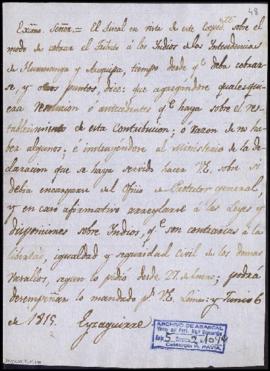 48
Exmo Señor = El Fiscal en vista de este Expedte sobre el
modo de cobrar el Tributo á los Indios de las Intendencias
de Huamanga y Arequipa, tiempo desde qe deba cobrarse,
y otros puntos, dice: que agregandose qualesquiera
Resolucion ó antecedentes qe haya sobre el restablecimiento
de esta Contribucion; ó razon de no haber
algunos; é instruyendose al Ministerio de la declaracion
que se haya servido hacer VE. sobre si
debia encargarse del Oficio de Protector general,
y en caso afirmativo arreglarse á las Leyes y
disposiciones sobre Indios, qe son contrarias á la
libertad, igualdad y seguridad Civil de los demas
Vasallos, segun lo pidió desde de podrá
desempeñar lo mandado pr VE. Lima: y Junio 6
de 1815. Eyzaguirre
ARCHIVO DE ABASCAL